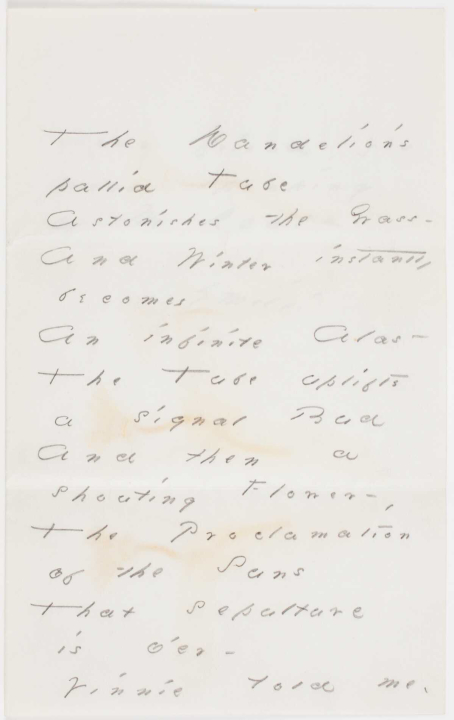 The Dandelion's
pallid Tube
Astonishes the Grass -
And Winter instantly
becomes
An infinite Alas -
The Tube uplifts
a signal Bud
And then a
shouting Flower -,
The Proclamation
of the Suns
That sepulture
is o'er -
Vinnie told me.